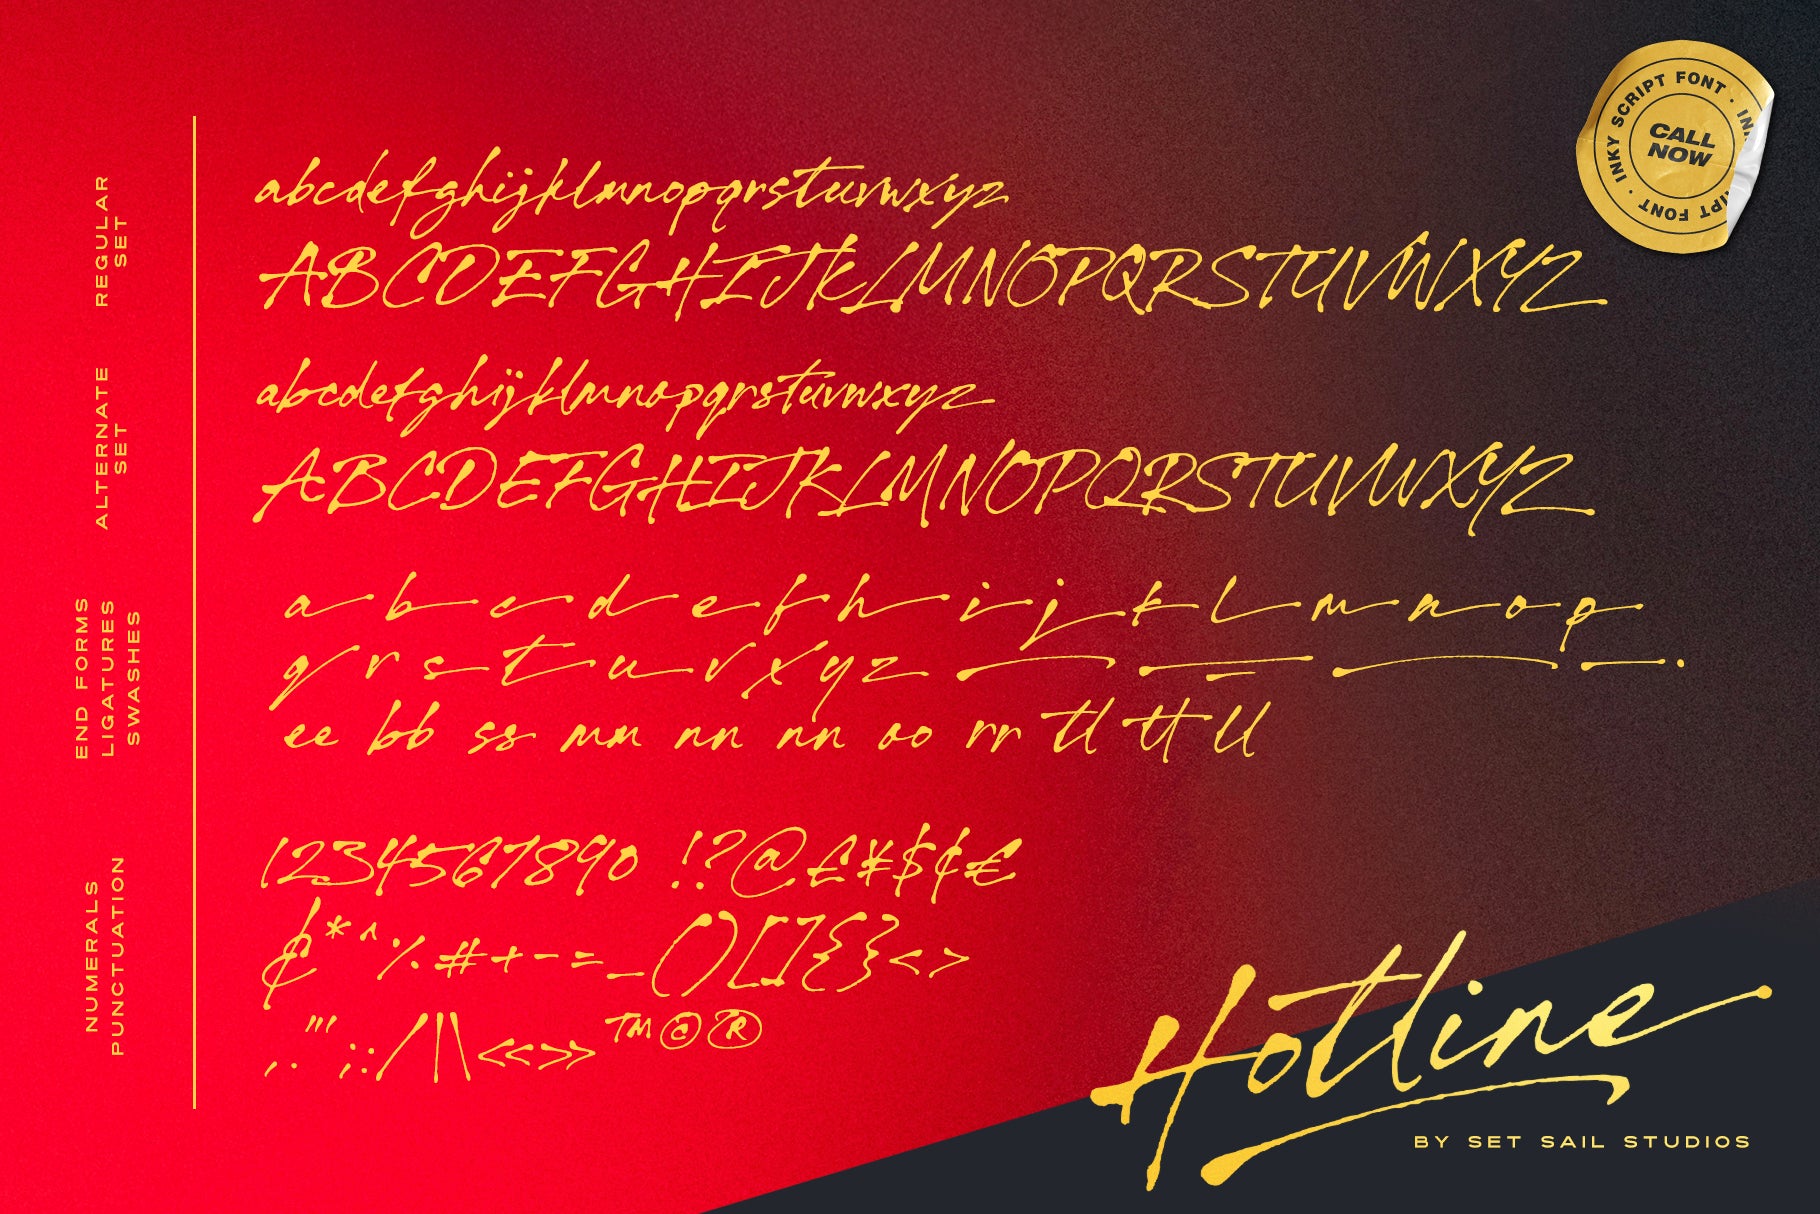 INKY SCRIPT FONT · INKY SCRIPT FONT ·
CALL
NOW
REGULAR
SET
abcdefghijklmnopqrstuvwxyz
ABCDEFGHIJKLMNOPQRSTUVWXYZ
ALTERNATE
SET
abcdefghijklmnopqrstuvwxyz
ABCDEFGHIJKLMNOPQRSTUVWXYZ
END FORMS
LIGATURES
SWASHES
a b c d e f h i j k l m n o p
q r s t u v x y z
ee bb ss mm nn nn oo rr tl tt ll
NUMERALS
PUNCTUATION
1234567890 !?@£¥$¢€
₵*^%#+-=_()[]{}<>
,."';:/|\«»™©®
Hotline
BY SET SAIL STUDIOS